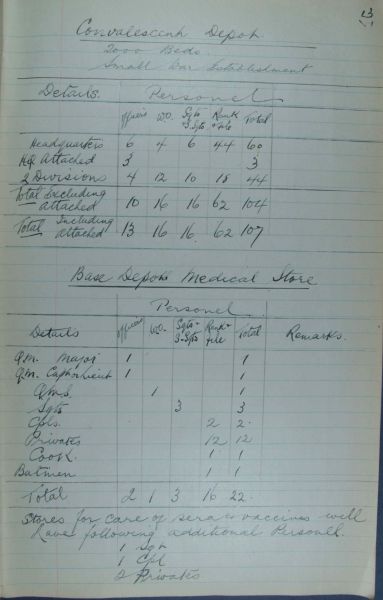 13
Convalescent Depot
2000 Beds.
Small War Establishment
Details. Personel
Officers W.O. Sgts S.Sgts Rank & File Total
Headquarters 6 4 6 44 60
HQ Attached 3 3
2 Divisions 4 12 10 18 44
Total Excluding Attached 10 16 16 62 104
Total Including Attached 13 16 16. 62 107
Base Depot Medical Store
Personel
Details Officers W.O. Sgts & S.Sgts Rank & File Total Remarks.
Q.M. Major 1 1
Q.M. Capt or Lieut 1 1
Q.M.S. 1 1
Sgts 3 3
Cpls. 2 2.
Privates 12 12
Cook. 1 1
Batmen 1 1
Total 2 1 3 16 22.
Stores for care of sera & vaccines will
have following additional Personell.
1 Sgt
1 Cpl
2 Privates